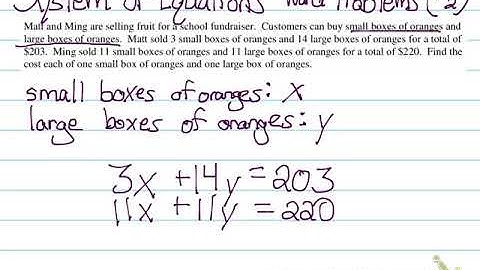 System of Equations Word Problems (2)
Matt and Ming are selling fruit for a school fundraiser. Customers can buy small boxes of oranges and
large boxes of oranges. Matt sold 3 small boxes of oranges and 14 large boxes of oranges for a total of
$203. Ming sold 11 small boxes of oranges and 11 large boxes of oranges for a total of $220. Find the
cost each of one small box of oranges and one large box of oranges.
small boxes of oranges: x
large boxes of oranges: y
3x + 14y = 203
11x + 11y = 220